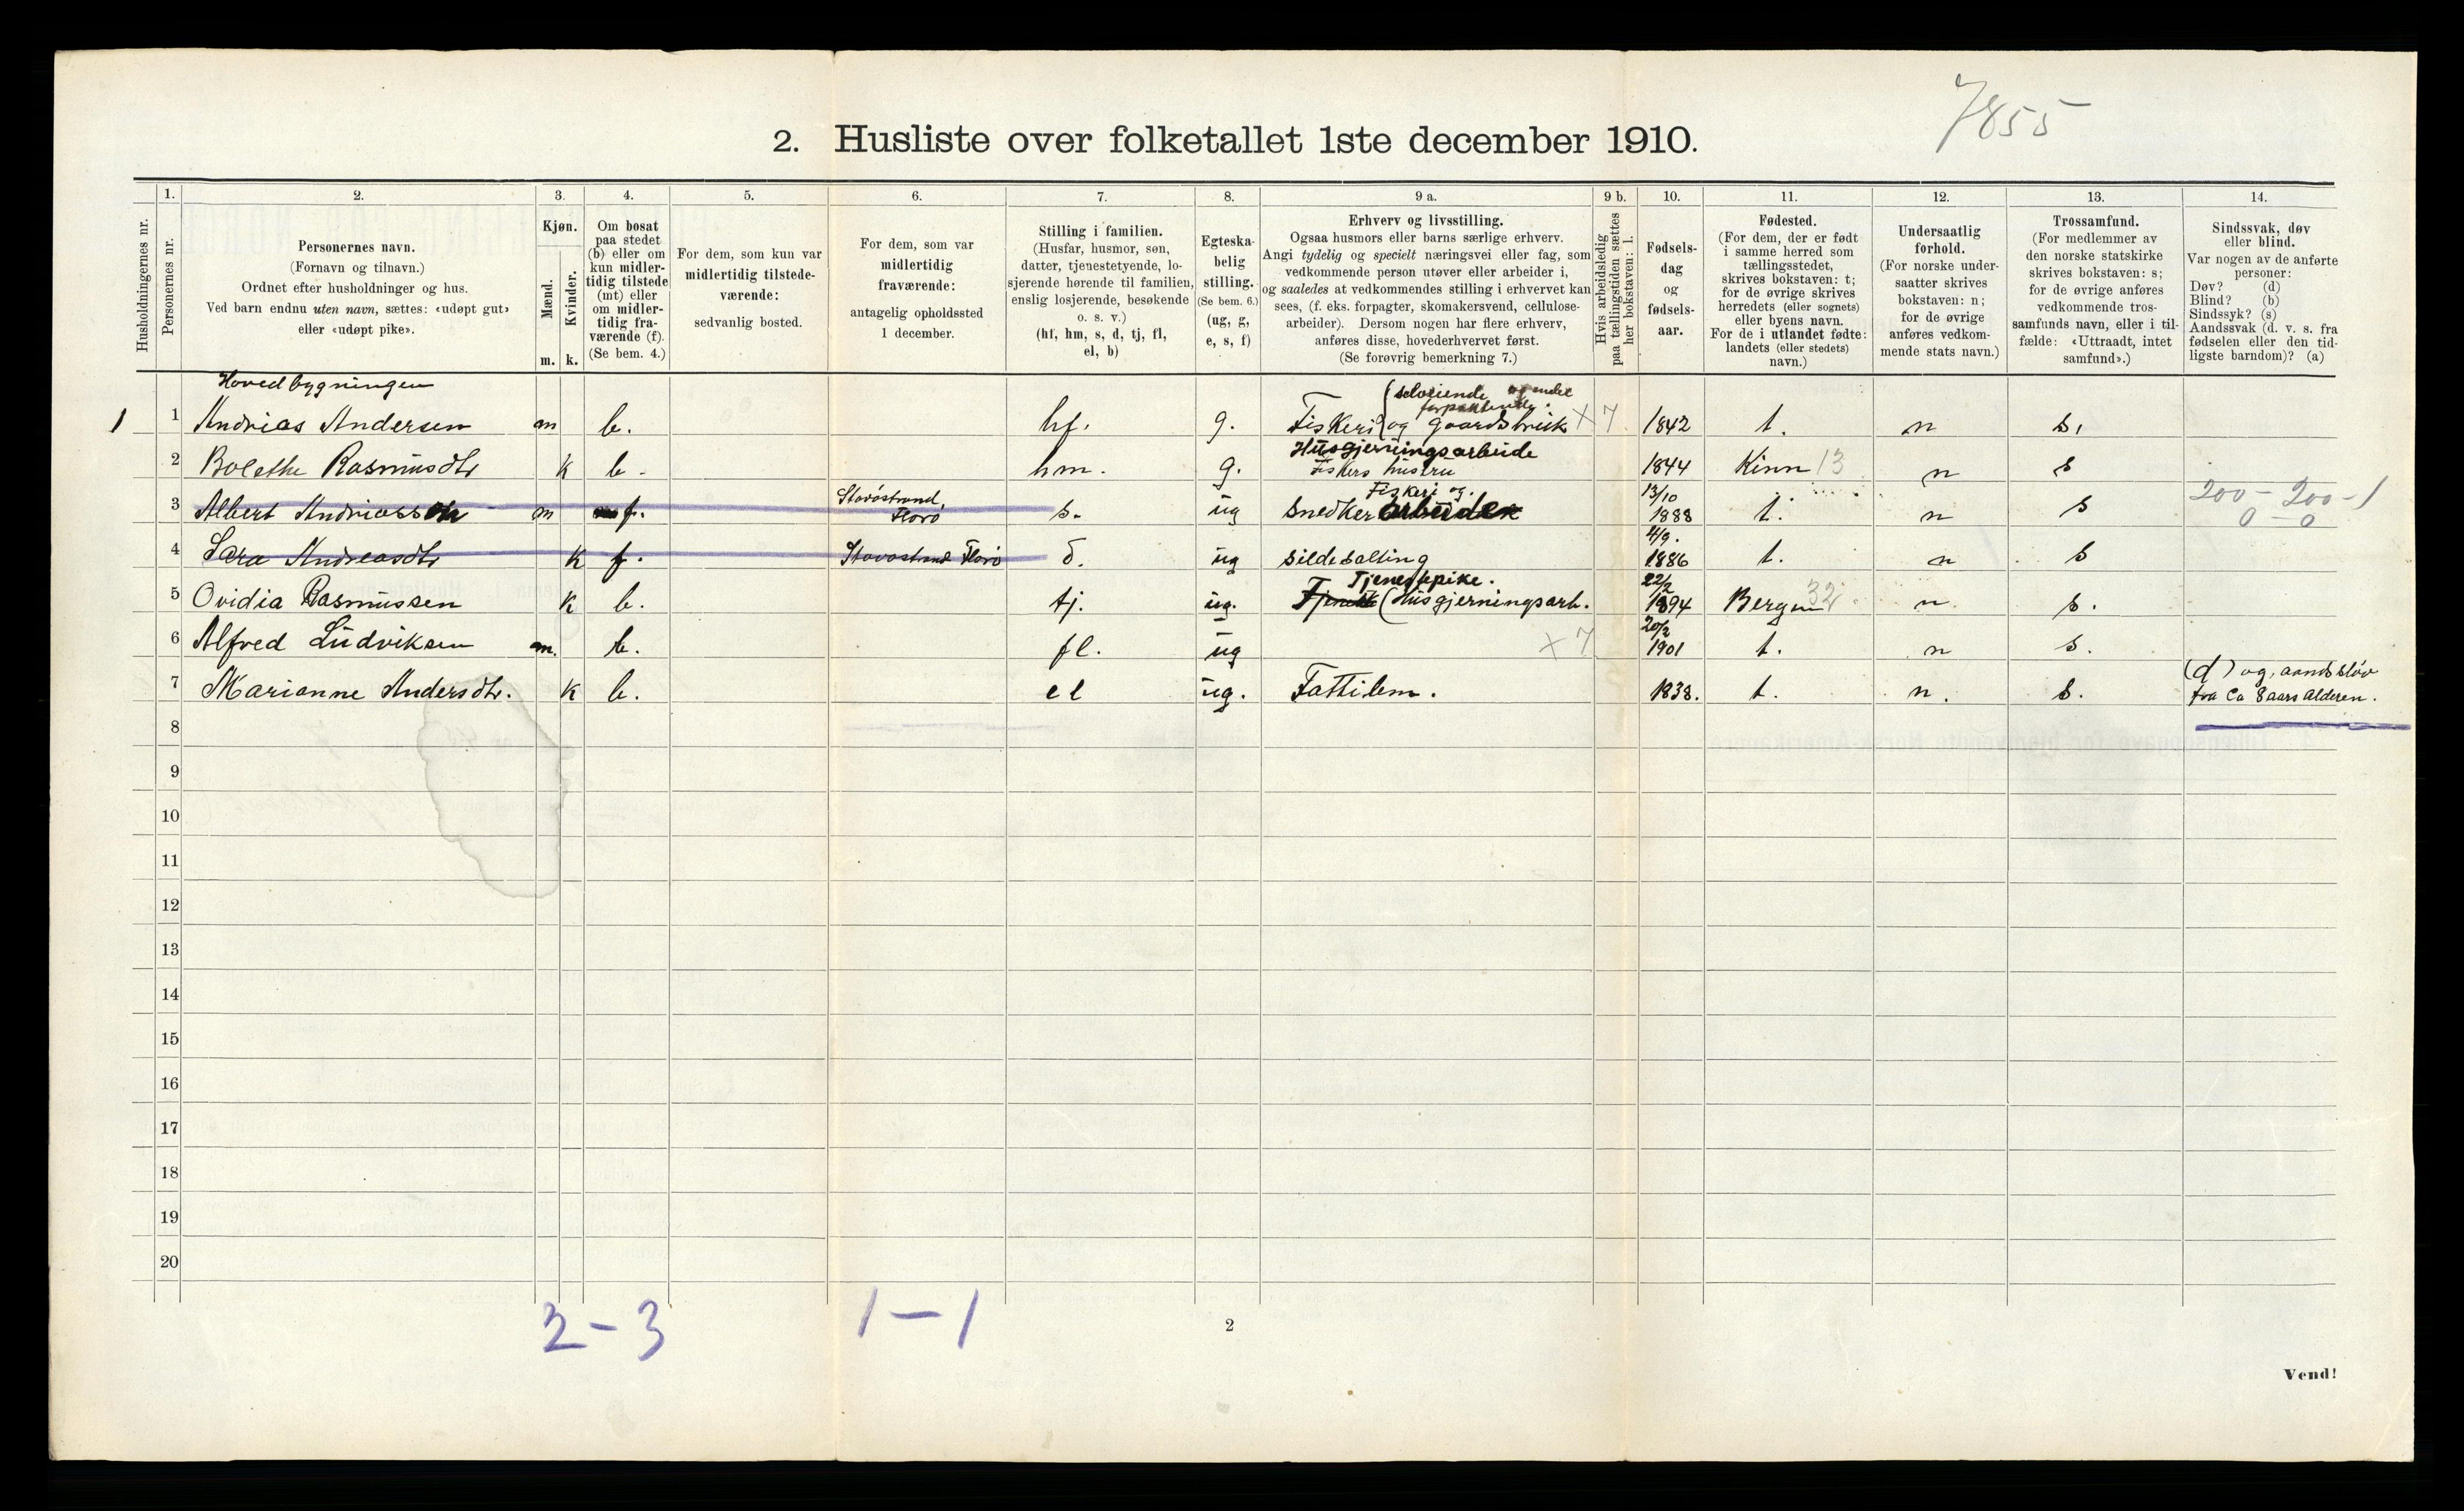 7855
2. Husliste over folketallet 1ste december 1910.
Husholdningernes nr.
1.
Personernes nr.
2.
Personernes navn.
(Fornavn og tilnavn.)
Ordnet efter husholdninger og hus.
Ved barn endnu uten navn, sættes: «udøpt gut»
eller «udøpt pike».
3.
Kjøn.
Mænd.
Kvinder.
m. k.
4.
Om bosat
paa stedet
(b) eller om
kun midler-
tidig tilstede
(mt) eller
om midler-
tidig fra-
værende (f).
(Se bem. 4.)
5.
For dem, som kun var
midlertidig tilstede-
værende:
sedvanlig bosted.
6.
For dem, som var
midlertidig
fraværende:
antagelig opholdssted
1 december.
7.
Stilling i familien.
(Husfar, husmor, søn,
datter, tjenestetyende, lo-
sjerende hørende til familien,
enslig losjerende, besøkende
o. s. v.)
(hf, hm, s, d, tj, fl,
el, b)
8.
Egteska-
belig
stilling.
(Se bem. 6.)
(ug, g,
e, s, f)
9 a.
Erhverv og livsstilling.
Ogsaa husmors eller barns særlige erhverv.
Angi tydelig og specielt næringsvei eller fag, som
vedkommende person utøver eller arbeider i,
og saaledes at vedkommendes stilling i erhvervet kan
sees, (f. eks. forpagter, skomakersvend, cellulose-
arbeider). Dersom nogen har flere erhverv,
anføres disse, hovederhvervet først.
(Se forøvrig bemerkning 7.)
9 b.
Hvis arbeidsledig
paa tællingstiden sættes
her bokstaven: l.
10.
Fødsels-
dag
og
fødsels-
aar.
11.
Fødested.
(For dem, der er født
i samme herred som
tællingsstedet,
skrives bokstaven: t;
for de øvrige skrives
herredets (eller sognets)
eller byens navn.
For de i utlandet fødte:
landets (eller stedets)
navn.)
12.
Undersaatlig
forhold.
(For norske under-
saatter skrives
bokstaven: n;
for de øvrige
anføres vedkom-
mende stats navn.)
13.
Trossamfund.
(For medlemmer av
den norske statskirke
skrives bokstaven: s;
for de øvrige anføres
vedkommende tros-
samfunds navn, eller i til-
fælde: «Uttraadt, intet
samfund».)
14.
Sindssvak, døv
eller blind.
Var nogen av de anførte
personer:
Døv? (d)
Blind? (b)
Sindssyk? (s)
Aandssvak (d. v. s. fra
fødselen eller den tid-
ligste barndom)? (a)
Hovedbygningen
(selveiende og endel
forpaktende.
1 1 Andrias Andersen m b. hf. g. Fiskeri og gaardsbruk x 7 1842 t. n s.
Husgjerningsarbeide
2 Bolethe Rasmusdtr k b. hm. g. Fiskers hustru 1844 Kinn 13 n s
Stavøstrand Fiskeri og. 13/10 200 - 200 - 1
3 Albert Andriassen m f. Florø s. ug Snedker arbeider 1888 t. n s 0 - 0
4/9.
4 Sara Andreasdtr k f. Stavøstrand Florø d. ug sildesalting 1886 t. n s
Tjenestepike. 22/2
5 Ovidia Rasmussen k b. tj. ug. Tjeneste (Husgjerningsarb. 1894 Bergen 32 n s.
20/2
6 Alfred Ludviksen m. b. fl. ug x 7 1901 t. n s.
(d) og aandssløv
7 Marianne Andersdtr. k b. el ug. Fattilem. 1838. t. n. s. fra Ca 8 aars Alderen.
8
9
10
11
12
13
14
15
16
17
18
19
20
2 - 3 1 - 1
2
Vend!